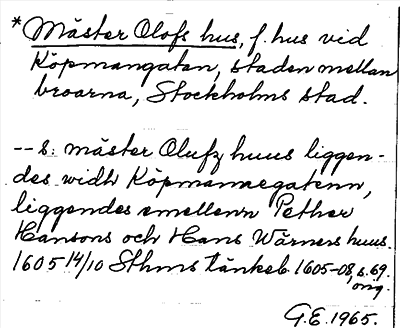 * Mäster Olofs hus, f. hus vid
Köpmangatan, staden mellan
broarna, Stockholms stad.
-- s: mäster Olufz huus liggen-
des widh Köpmannegatenn,
liggendes emellenn Pether
Hansons och Hans Wärners huus.
1605 14/10 Sthms tänkeb. 1605-08, s. 69.
orig.
G.E. 1965.